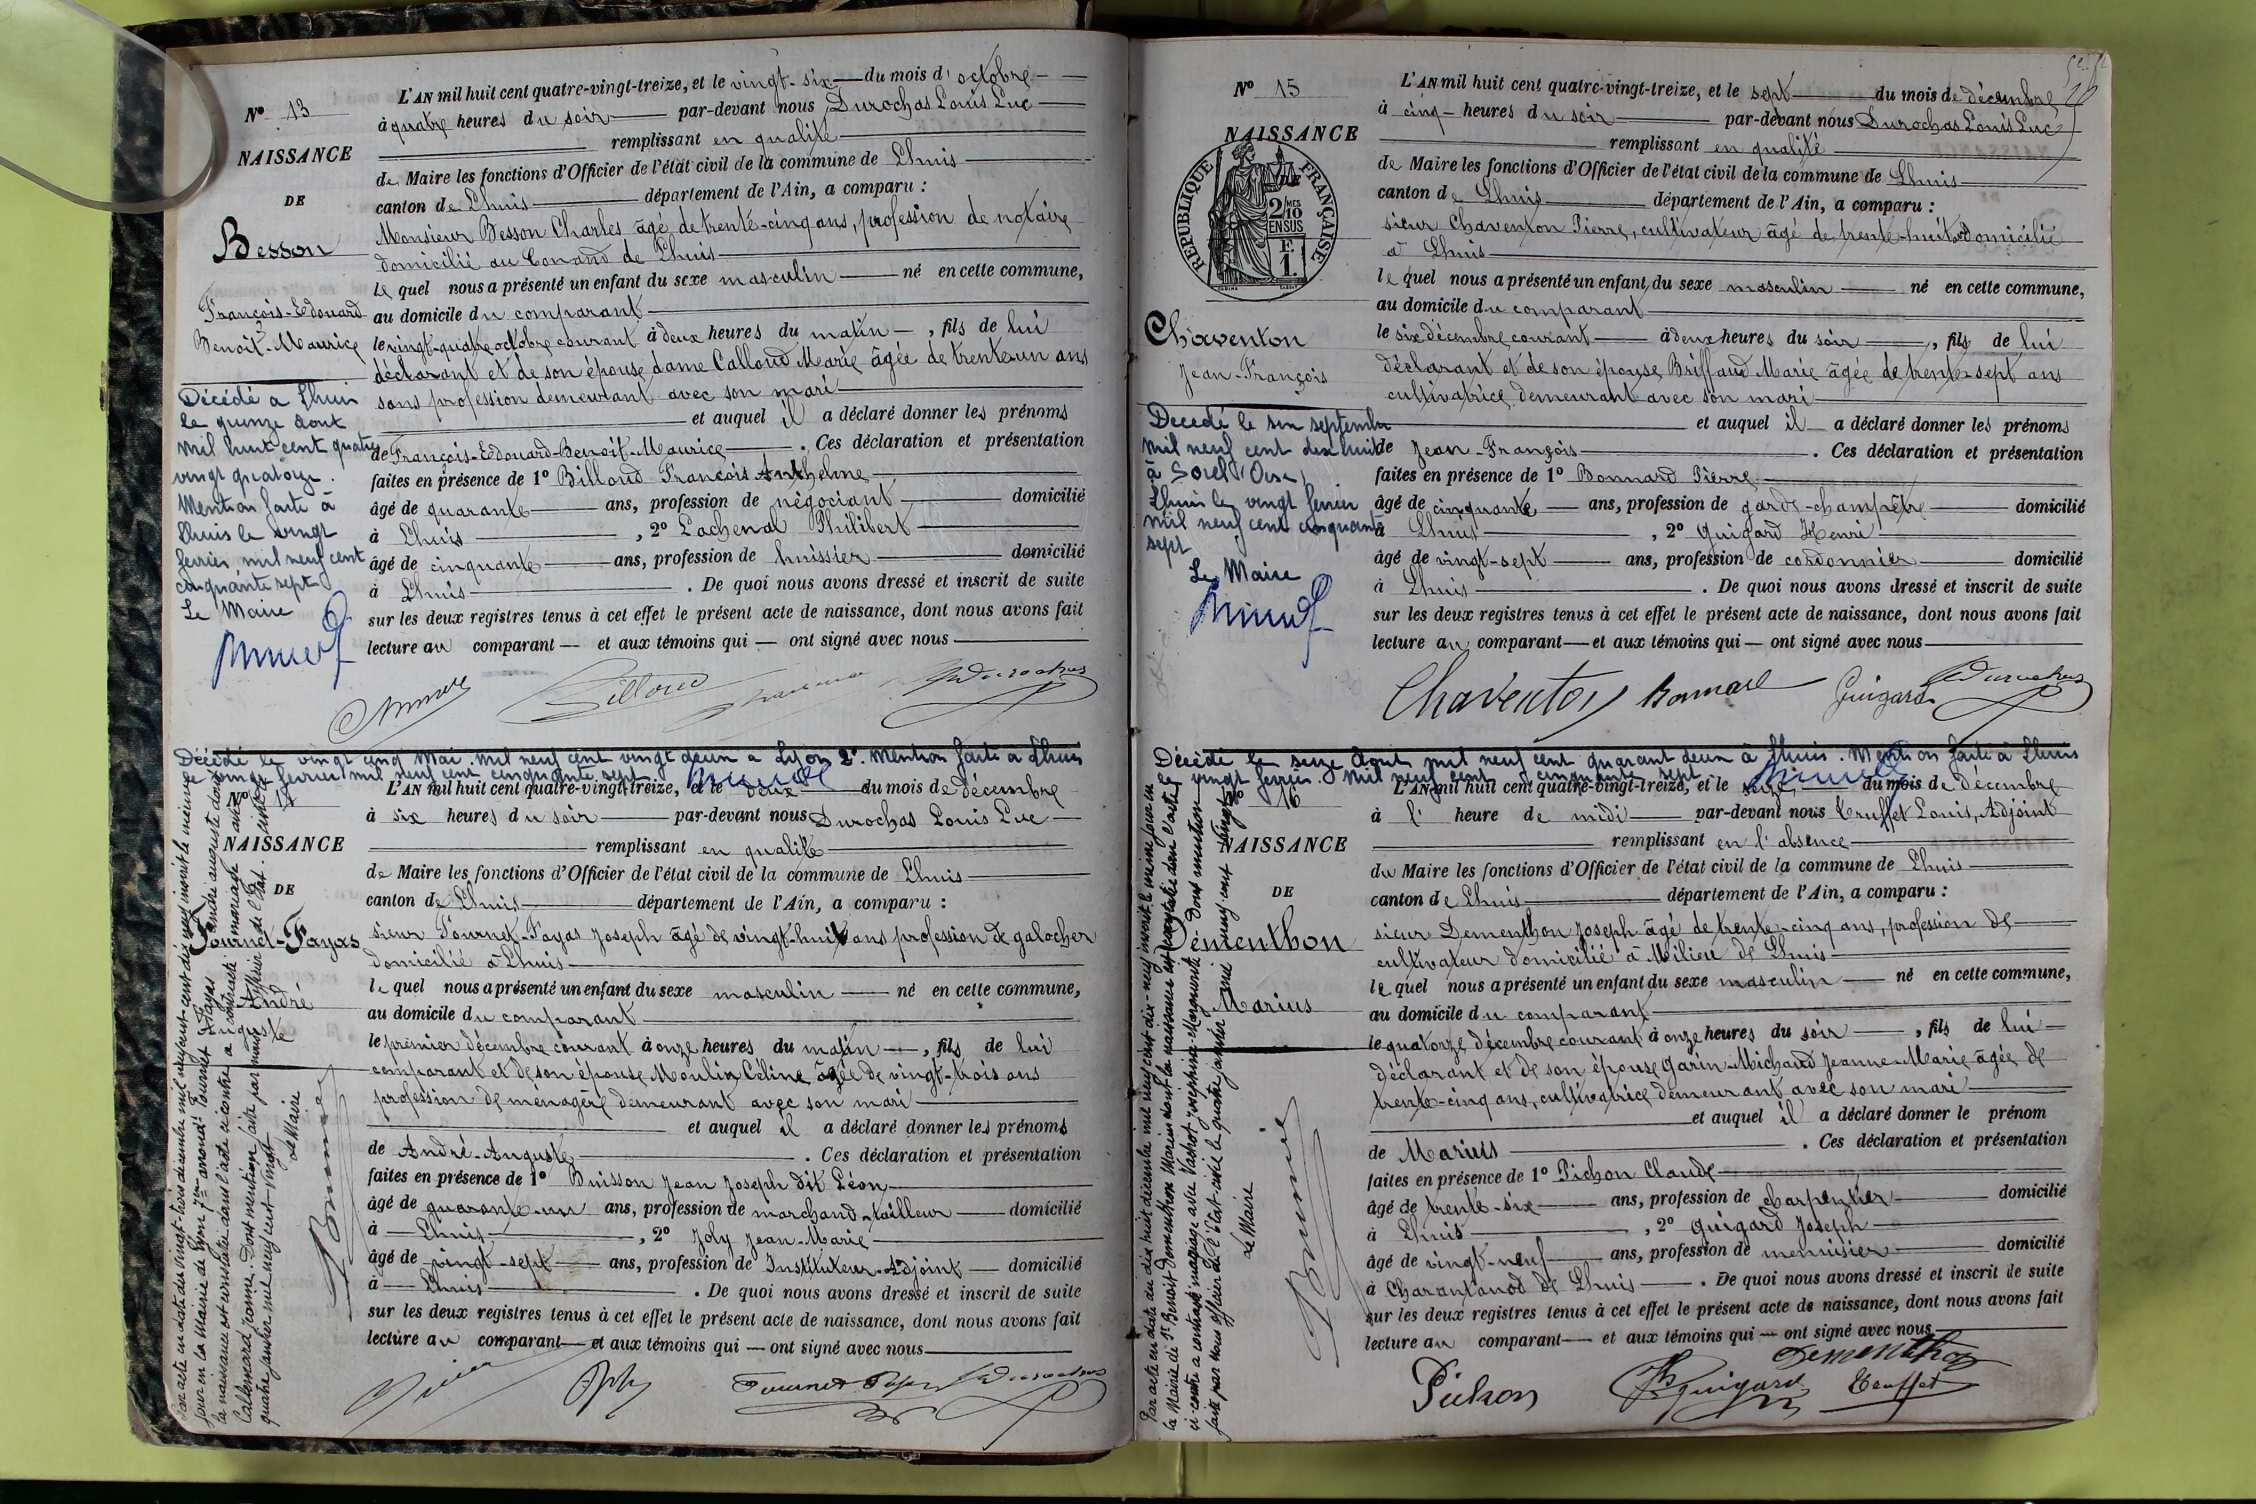 N° 13
NAISSANCE
DE
Besson
François-Edouard
Benoît-Maurice
Décédé à Lhuis
le quinze août
mil huit cent quatre
vingt quatorze.
Mention faite à
Lhuis le vingt
fevrier mil neuf cent
cinquante sept
Le Maire
L'AN mil huit cent quatre-vingt-treize, et le vingt-six du mois d'octobre
à quatre heures du soir par-devant nous Durochas Louis Luc
remplissant en qualité
de Maire les fonctions d'Officier de l'état civil de la commune de Lhuis
canton de Lhuis département de l'Ain, a comparu :
Monsieur Besson Charles âgé de trente-cinq ans, profession de notaire
domicilié au Conand de Lhuis
le quel nous a présenté un enfant du sexe masculin né en cette commune,
au domicile du comparant
le vingt-quatre octobre courant à deux heures du matin, fils de lui
déclarant et de son épouse dame Calloud Marie âgée de trente-un ans
sans profession demeurant avec son mari
et auquel il a déclaré donner les prénoms
de François-Edouard-Benoît-Maurice. Ces déclaration et présentation
faites en présence de 1° Billoud François Anthelme
âgé de quarante ans, profession de négociant domicilié
à Lhuis, 2° Lachenal Philibert
âgé de cinquante ans, profession de huissier domicilié
à Lhuis. De quoi nous avons dressé et inscrit de suite
sur les deux registres tenus à cet effet le présent acte de naissance, dont nous avons fait
lecture au comparant et aux témoins qui ont signé avec nous
Billoud Durochas
Décédé le vingt cinq Mai mil neuf cent vingt deux a Lyon 2°. Mention faite a Lhuis
le vingt fevrier mil neuf cent cinquante sept
N° 14
NAISSANCE
DE
Fournet-Fayas
André
Auguste
Par acte en date du vingt-trois décembre mil neuf cent dix neuf inscrit le même
jour en la Mairie de Lyon 7me arrond. Fournet Fayas André Auguste dont
la naissance est constatée dans l'acte ci contre a contracté mariage avec
Jeanne. Dont mention faite par nous Officier de l'état civil
quatre janvier mil neuf cent vingt
Le Maire
L'AN mil huit cent quatre-vingt-treize, et le deux du mois de décembre
à six heures du soir par-devant nous Durochas Louis Luc
remplissant en qualité
de Maire les fonctions d'Officier de l'état civil de la commune de Lhuis
canton de Lhuis département de l'Ain, a comparu :
sieur Fournet-Fayas Joseph âgé de vingt-huit ans profession de galocher
domicilié à Lhuis
le quel nous a présenté un enfant du sexe masculin né en cette commune,
au domicile du comparant
le premier décembre courant à onze heures du matin, fils de lui
comparant et de son épouse Moulin Céline âgée de vingt-trois ans
profession de ménagère demeurant avec son mari
et auquel il a déclaré donner les prénoms
de André-Auguste. Ces déclaration et présentation
faites en présence de 1° Buisson Jean Joseph dit Léon
âgé de quarante-un ans, profession de marchand-tailleur domicilié
à Lhuis, 2° Joly Jean-Marie
âgé de vingt-sept ans, profession de Instituteur-Adjoint domicilié
à Lhuis. De quoi nous avons dressé et inscrit de suite
sur les deux registres tenus à cet effet le présent acte de naissance, dont nous avons fait
lecture au comparant et aux témoins qui ont signé avec nous
Joly Fournet Fayas Durochas
N° 15
NAISSANCE
DE
REPUBLIQUE FRANÇAISE
2/10 MES
EN SUS
F.
1.
Chaventon
Jean-François
Decédé le septembre
mil neuf cent dix huit
à Sorel Oise
Lhuis le vingt fevrier
mil neuf cent cinquante
sept
Le Maire
L'AN mil huit cent quatre-vingt-treize, et le sept du mois de décembre
à cinq heures du soir par-devant nous Durochas Louis Luc
remplissant en qualité
de Maire les fonctions d'Officier de l'état civil de la commune de Lhuis
canton de Lhuis département de l'Ain, a comparu :
sieur Chaventon Pierre, cultivateur âgé de trente-huit domicilié
à Lhuis
le quel nous a présenté un enfant du sexe masculin né en cette commune,
au domicile du comparant
le six décembre courant à deux heures du soir, fils de lui
déclarant et de son épouse Briffaud Marie âgée de trente-sept ans
cultivatrice demeurant avec son mari
et auquel il a déclaré donner les prénoms
de Jean-François. Ces déclaration et présentation
faites en présence de 1° Bonnard Pierre
âgé de cinquante ans, profession de garde-champêtre domicilié
à Lhuis, 2° Guigard Henri
âgé de vingt-sept ans, profession de cordonnier domicilié
à Lhuis. De quoi nous avons dressé et inscrit de suite
sur les deux registres tenus à cet effet le présent acte de naissance, dont nous avons fait
lecture au comparant et aux témoins qui ont signé avec nous
Chaventon Bonnard Guigard Durochas
Décédé le seize Aout mil neuf cent quarant deux à Lhuis. Mention faite à Lhuis
le vingt fevrier mil neuf cent cinquante sept
N° 16
NAISSANCE
DE
Dementhon
Marius
Par acte en date du dix huit décembre mil neuf cent dix-neuf inscrit le même jour en
la Mairie de St Benoit Dementhon Marius dont la naissance est constatée dans l'acte
ci-contre a contracté mariage avec Marguerite. Dont mention
faite par nous officier de l'état-civil le quatre janvier mil neuf cent vingt
Le Maire
L'AN mil huit cent quatre-vingt-treize, et le seize du mois de décembre
à l'heure de midi par-devant nous Truffet Louis, Adjoint
remplissant en l'absence
du Maire les fonctions d'Officier de l'état civil de la commune de Lhuis
canton de Lhuis département de l'Ain, a comparu :
sieur Dementhon Joseph âgé de trente-cinq ans, profession de
cultivateur domicilié à Milieu de Lhuis
le quel nous a présenté un enfant du sexe masculin né en cette commune,
au domicile du comparant
le quatorze décembre courant à onze heures du soir, fils de lui
déclarant et de son épouse Garin-Michaud Jeanne-Marie âgée de
trente-cinq ans, cultivatrice demeurant avec son mari
et auquel il a déclaré donner le prénom
de Marius. Ces déclaration et présentation
faites en présence de 1° Pichon Claude
âgé de trente-six ans, profession de charpentier domicilié
à Lhuis, 2° Guigard Joseph
âgé de vingt-neuf ans, profession de menuisier domicilié
à Charantonod de Lhuis. De quoi nous avons dressé et inscrit de suite
sur les deux registres tenus à cet effet le présent acte de naissance, dont nous avons fait
lecture au comparant et aux témoins qui ont signé avec nous
Dementhon
Pichon Guigard Truffet